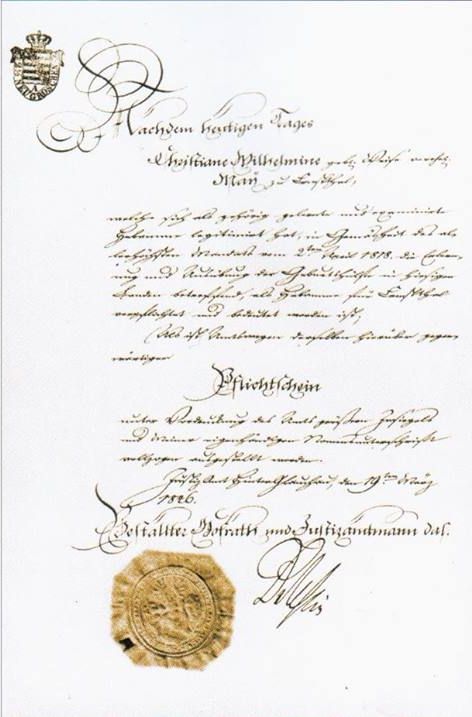 NEUGROSCHEN
Nachdem heutigen Tages
Christiane Wilhelmine geb. Weise verehel.
May zu Ernstthal,
welche sich als gehörig gelernte und examinirte
Hebamme legitimirt hat, in Gemäsheit des al-
lerhöchsten Mandats vom 2ten April 1818, die Erler-
nung und Ausübung der Geburtshülfe in hiesigen
Landen betreffend, als Hebamme für Ernstthal
verpflichtet und bedeutet worden ist;
Als ist Amtswegen derselben hierüber gegen-
wärtiger
Pflichtschein
unter Vordruckung des Amts größern Insiegels
und Meiner eigenhändigen Namensunterschrift
vollzogen ausgestellt worden.
Justizamt Hinterglauchau, den 19ten März
1846.
Bestallter Hofrath und Justizamtmann das.